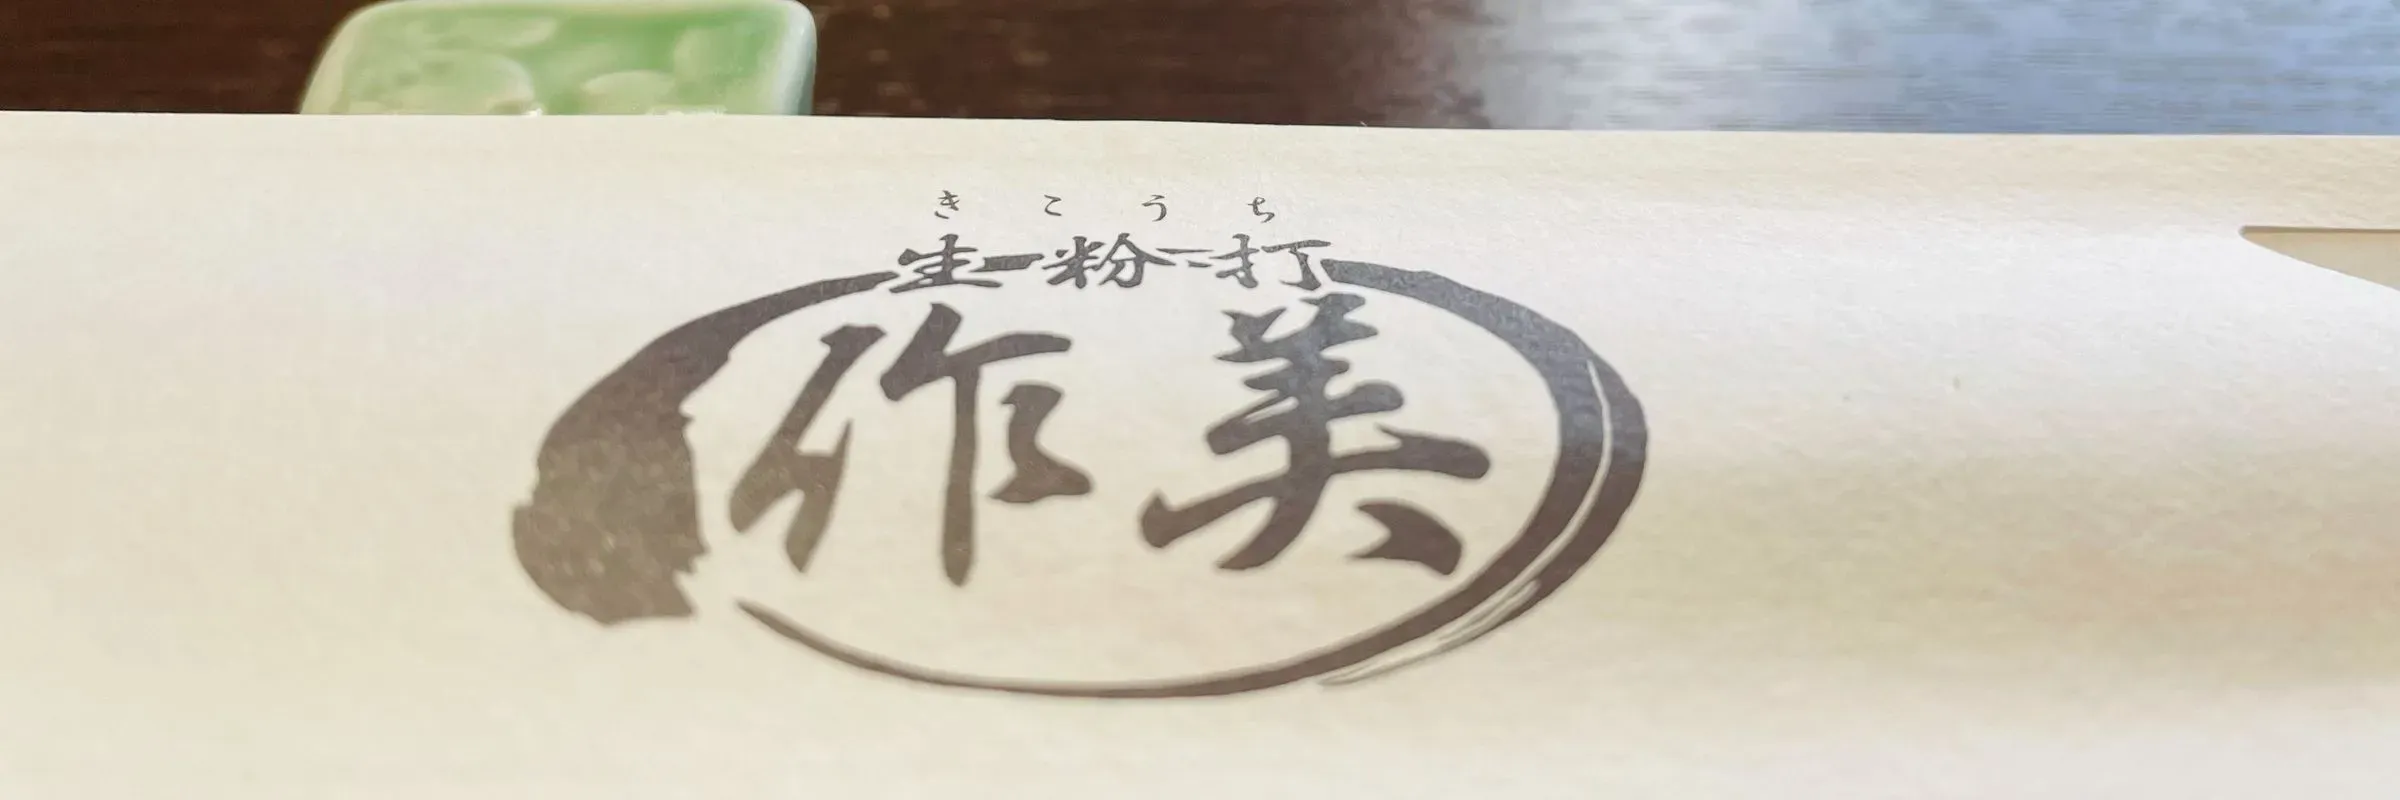 きこうち
生粉打
作美